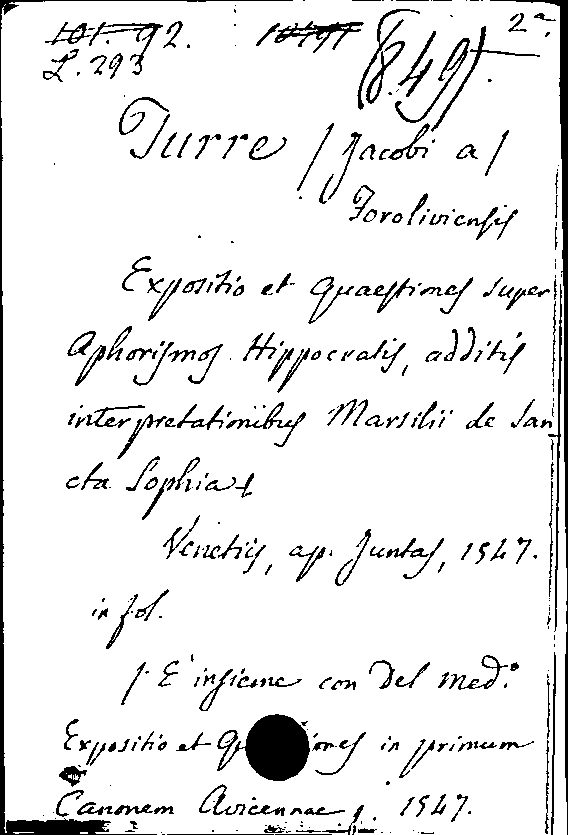 101. 92. 10491 2ª.
L. 293 (8.49)
Turre / Jacobi a /
Foroliviensis
Expositio et quaestiones super
Aphorismos Hippocratis, additis
interpretationibus Marsilii de San
cta Sophia
Venetiis, ap. Juntas, 1547.
in fol.
/ E' insieme con Del med.º
Expositio et Qu iones in primum
Canonem Avicennae /. 1547.